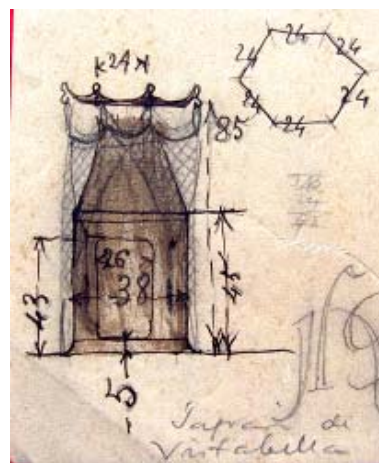 24
24
24
24
24
24
24
85
26
38
43
45
5
Sagrari de
Vistabella